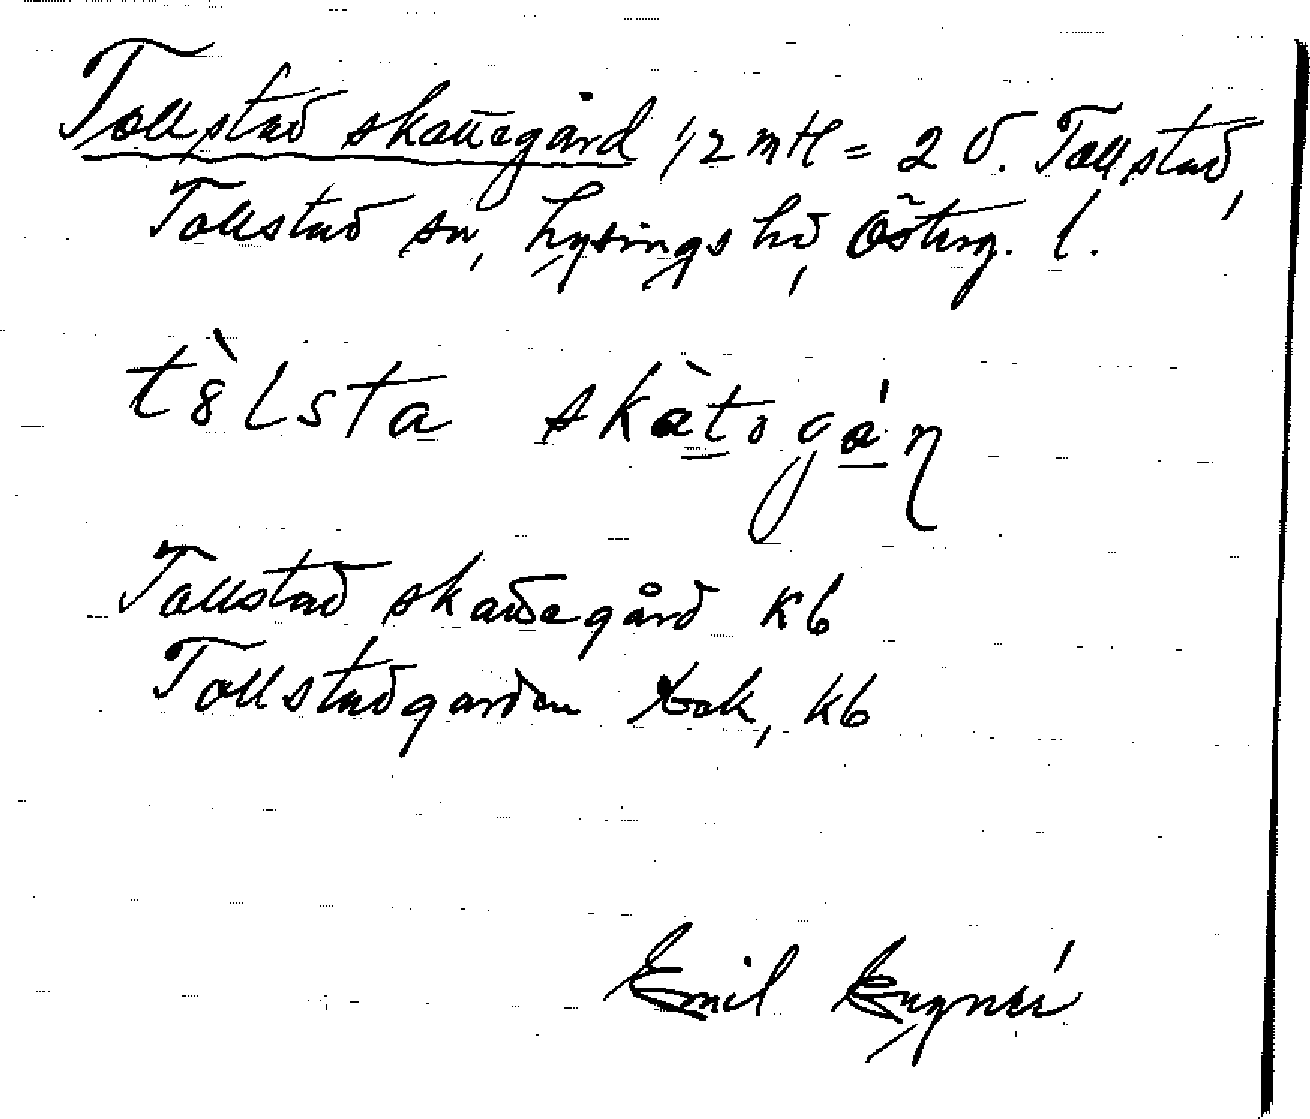 Tollstad skattegård 1/2 mtl = 2 d. Tollstad,
Tollstad sn, Lysings hd, Österg. l.
tòlsta skàtogán
Tollstad skattegård kb
Tollstadgården kb
Emil